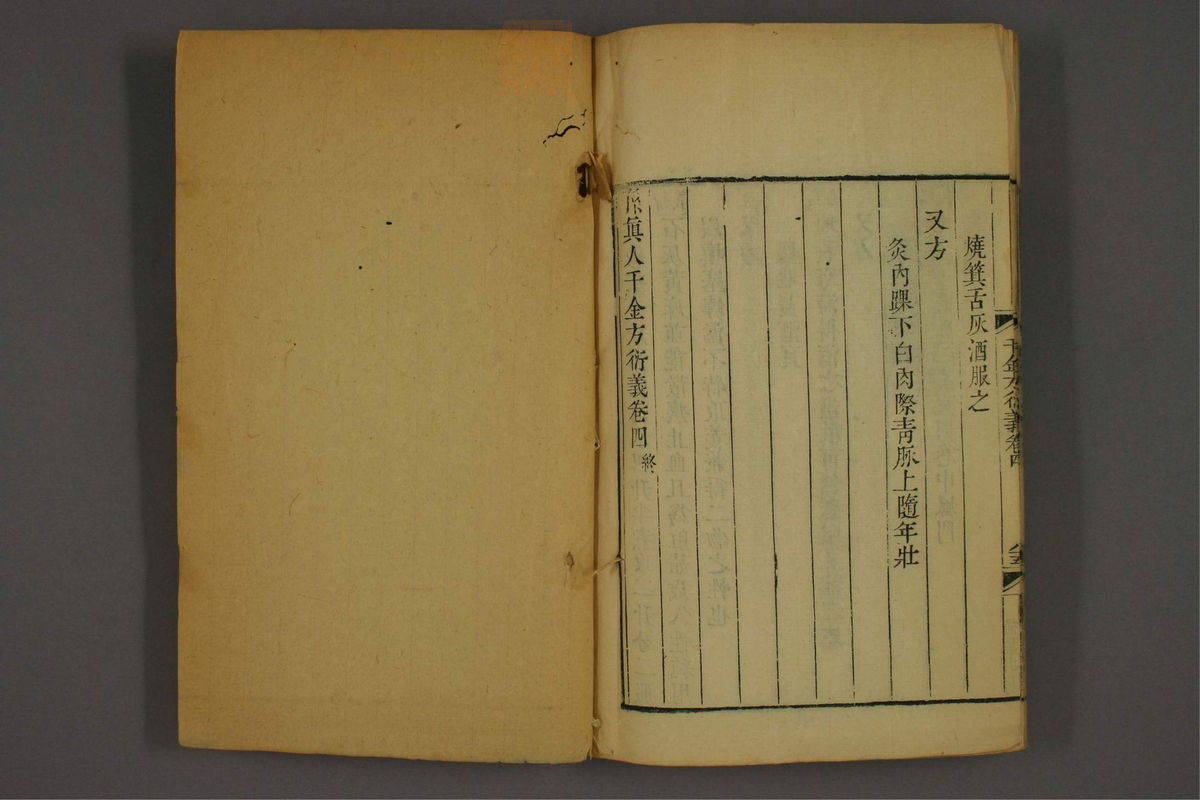 燒箕舌灰酒服之
又方
灸內踝下白肉際靑脉上隨年壯
孫眞人千金方衍義卷四終
千金方衍義卷四